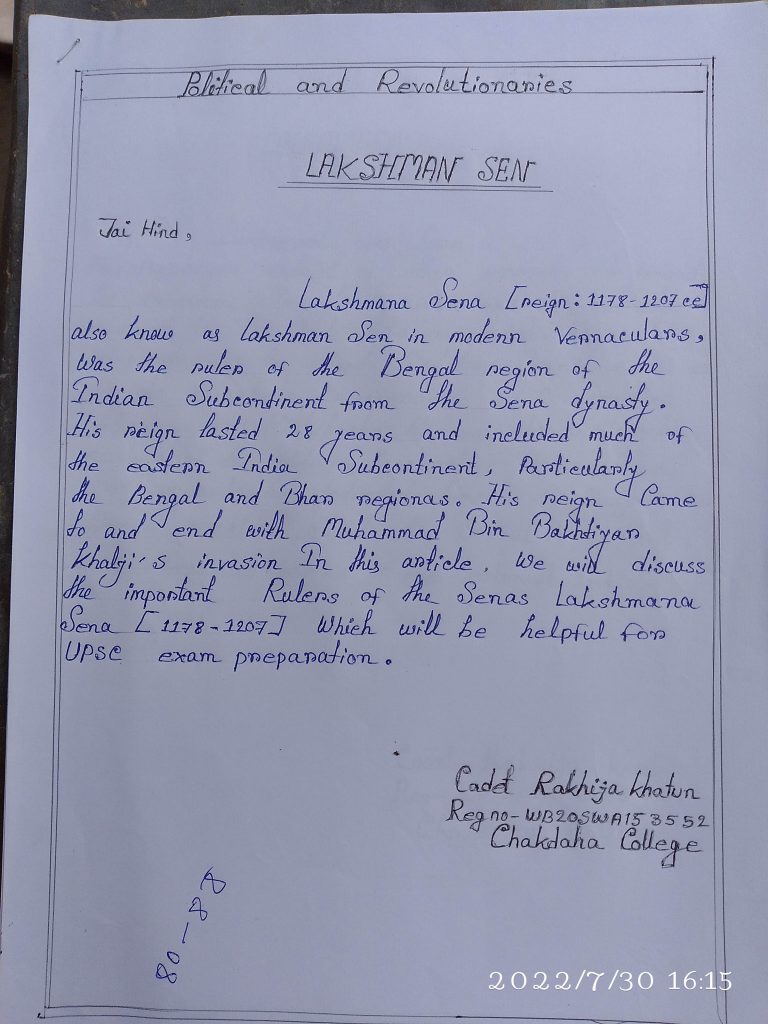 Political and Revolutionaries
LAKSHMAN SEN
Jai Hind,
Lakshmana Sena [reign: 1178-1207 ce]
also know as lakshman Sen in modern Vernaculars,
Was the ruler of the Bengal region of the
Indian Subcontinent from the Sena dynasty.
His reign lasted 28 years and included much of
the eastern India Subcontinent, Particularly
the Bengal and Bhar regionas. His reign Came
to and end with Muhammad Bin Bakhtiyar
Khalji's invasion In this article, We will discuss
the important Rulers of the Senas Lakshmana
Sena [1178-1207] Which will be helpful for
UPSC exam preparation.
Cadet Rakhija Khatun
Reg no- WB20SWA153552
Chakdaha College
80-88
2022/7/30 16:15